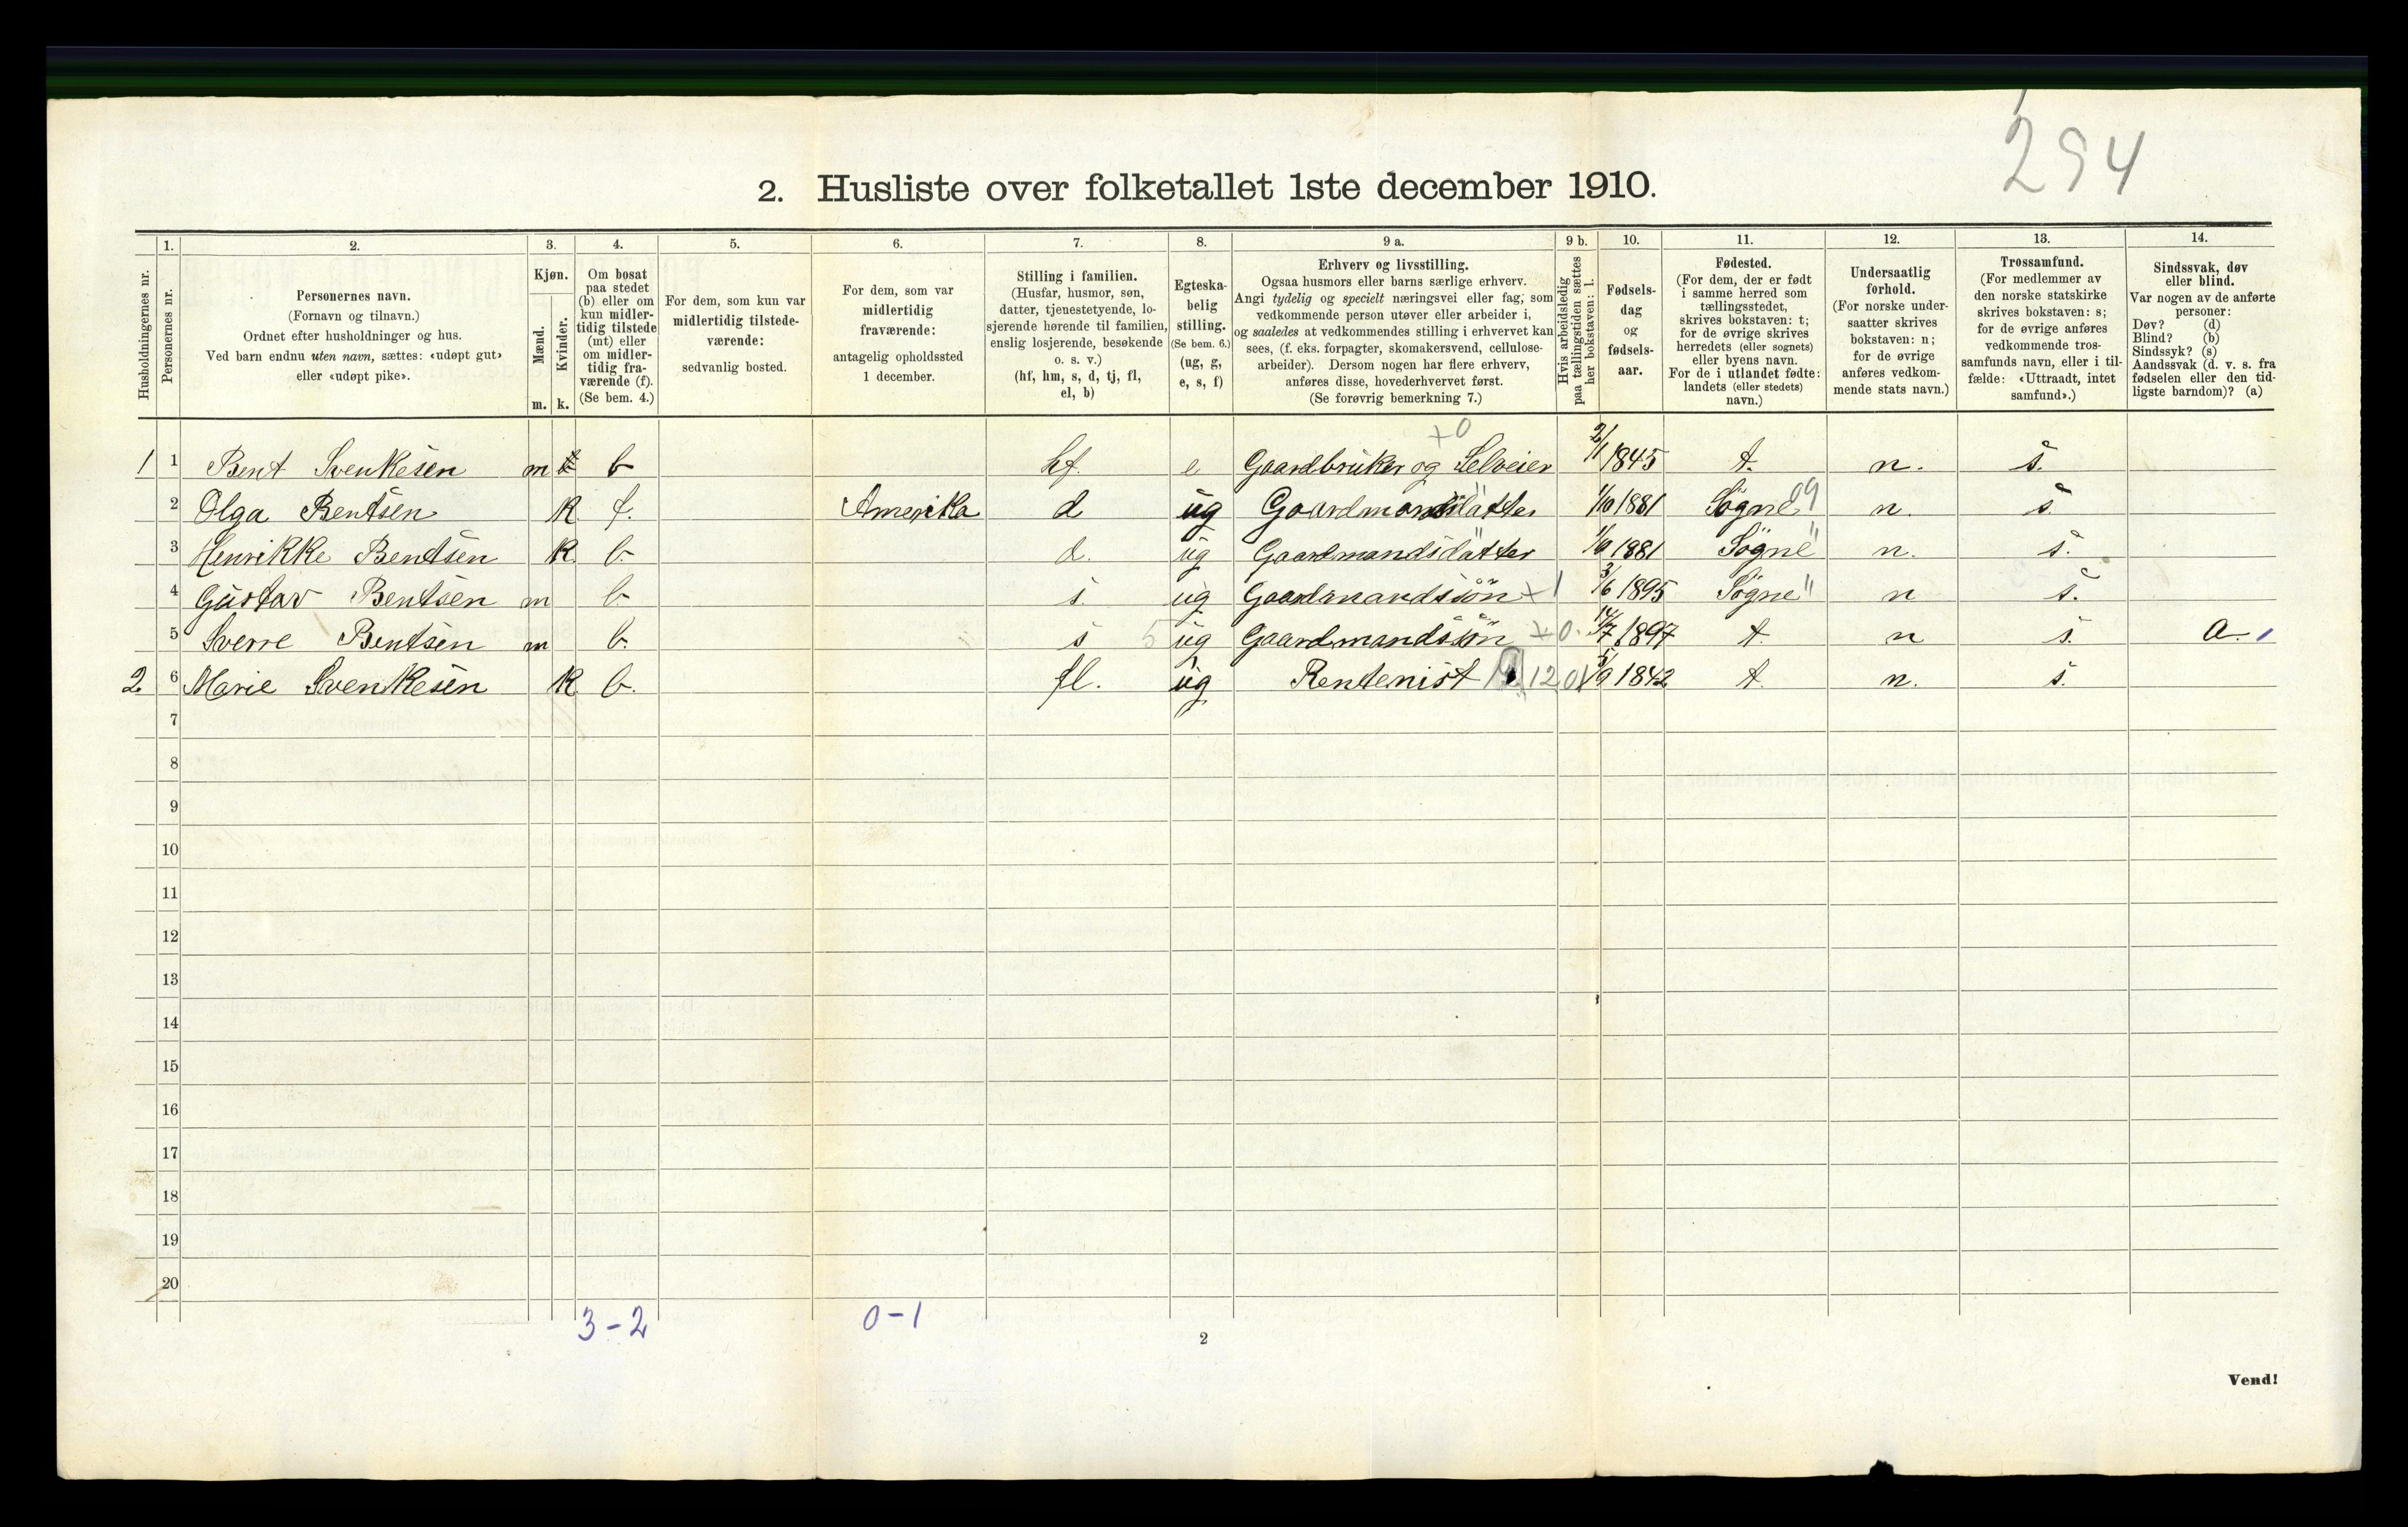 294
2. Husliste over folketallet 1ste december 1910.
Husholdningernes nr.
1. Personernes nr.
2. Personernes navn.
(Fornavn og tilnavn.)
Ordnet efter husholdninger og hus.
Ved barn endnu uten navn, sættes: «udøpt gut»
eller «udøpt pike».
3. Kjøn.
Mænd. m.
Kvinder. k.
4. Om bosat
paa stedet
(b) eller om
kun midler-
tidig tilstede
(mt) eller
om midler-
tidig fra-
værende (f).
(Se bem. 4.)
5. For dem, som kun var
midlertidig tilstede-
værende:
sedvanlig bosted.
6. For dem, som var
midlertidig
fraværende:
antagelig opholdssted
1 december.
7. Stilling i familien.
(Husfar, husmor, søn,
datter, tjenestetyende, lo-
sjerende hørende til familien,
enslig losjerende, besøkende
o. s. v.)
(hf, hm, s, d, tj, fl,
el, b)
8. Egteska-
belig
stilling.
(Se bem. 6.)
(ug, g,
e, s, f)
9 a. Erhverv og livsstilling.
Ogsaa husmors eller barns særlige erhverv.
Angi tydelig og specielt næringsvei eller fag, som
vedkommende person utøver eller arbeider i,
og saaledes at vedkommendes stilling i erhvervet kan
sees, (f. eks. forpagter, skomakersvend, cellulose-
arbeider). Dersom nogen har flere erhverv,
anføres disse, hovederhvervet først.
(Se forøvrig bemerkning 7.)
9 b. Hvis arbeidsledig
paa tællingstiden sættes
her bokstaven: l.
10. Fødsels-
dag
og
fødsels-
aar.
11. Fødested.
(For dem, der er født
i samme herred som
tællingsstedet,
skrives bokstaven: t;
for de øvrige skrives
herredets (eller sognets)
eller byens navn.
For de i utlandet fødte:
landets (eller stedets)
navn.)
12. Undersaatlig
forhold.
(For norske under-
saatter skrives
bokstaven: n;
for de øvrige
anføres vedkom-
mende stats navn.)
13. Trossamfund.
(For medlemmer av
den norske statskirke
skrives bokstaven: s;
for de øvrige anføres
vedkommende tros-
samfunds navn, eller i til-
fælde: «Uttraadt, intet
samfund».)
14. Sindssvak, døv
eller blind.
Var nogen av de anførte
personer:
Døv? (d)
Blind? (b)
Sindssyk? (s)
Aandssvak (d. v. s. fra
fødselen eller den tid-
ligste barndom)? (a)
+0
1 1 Bent Svenkesen m b hf. e Gaardbruker og Selveier 2/1 1845 t. n. s.
2 Olga Bentsen k f. Amerika d ug Gaardmandsdatter 1/10 1881 Søgne 09 n. s.
3 Henrikke Bentsen k b. d. ug Gaardmandsdatter 1881 Søgne " n. s.
4 Gustav Bentsen m b. s. ug Gaardmandssøn + 1 3/6 1895 Søgne " n s.
5 Sverre Bentsen m b. s 5 ug Gaardmandssøn +0. 1897 t. n s. a. 1
2 6 Marie Svenkesen k b. fl. ug Rentenist 12 01 1842 t. n. s.
7
8
9
10
11
12
13
14
15
16
17
18
19
20
3-2 0-1
2
Vend!